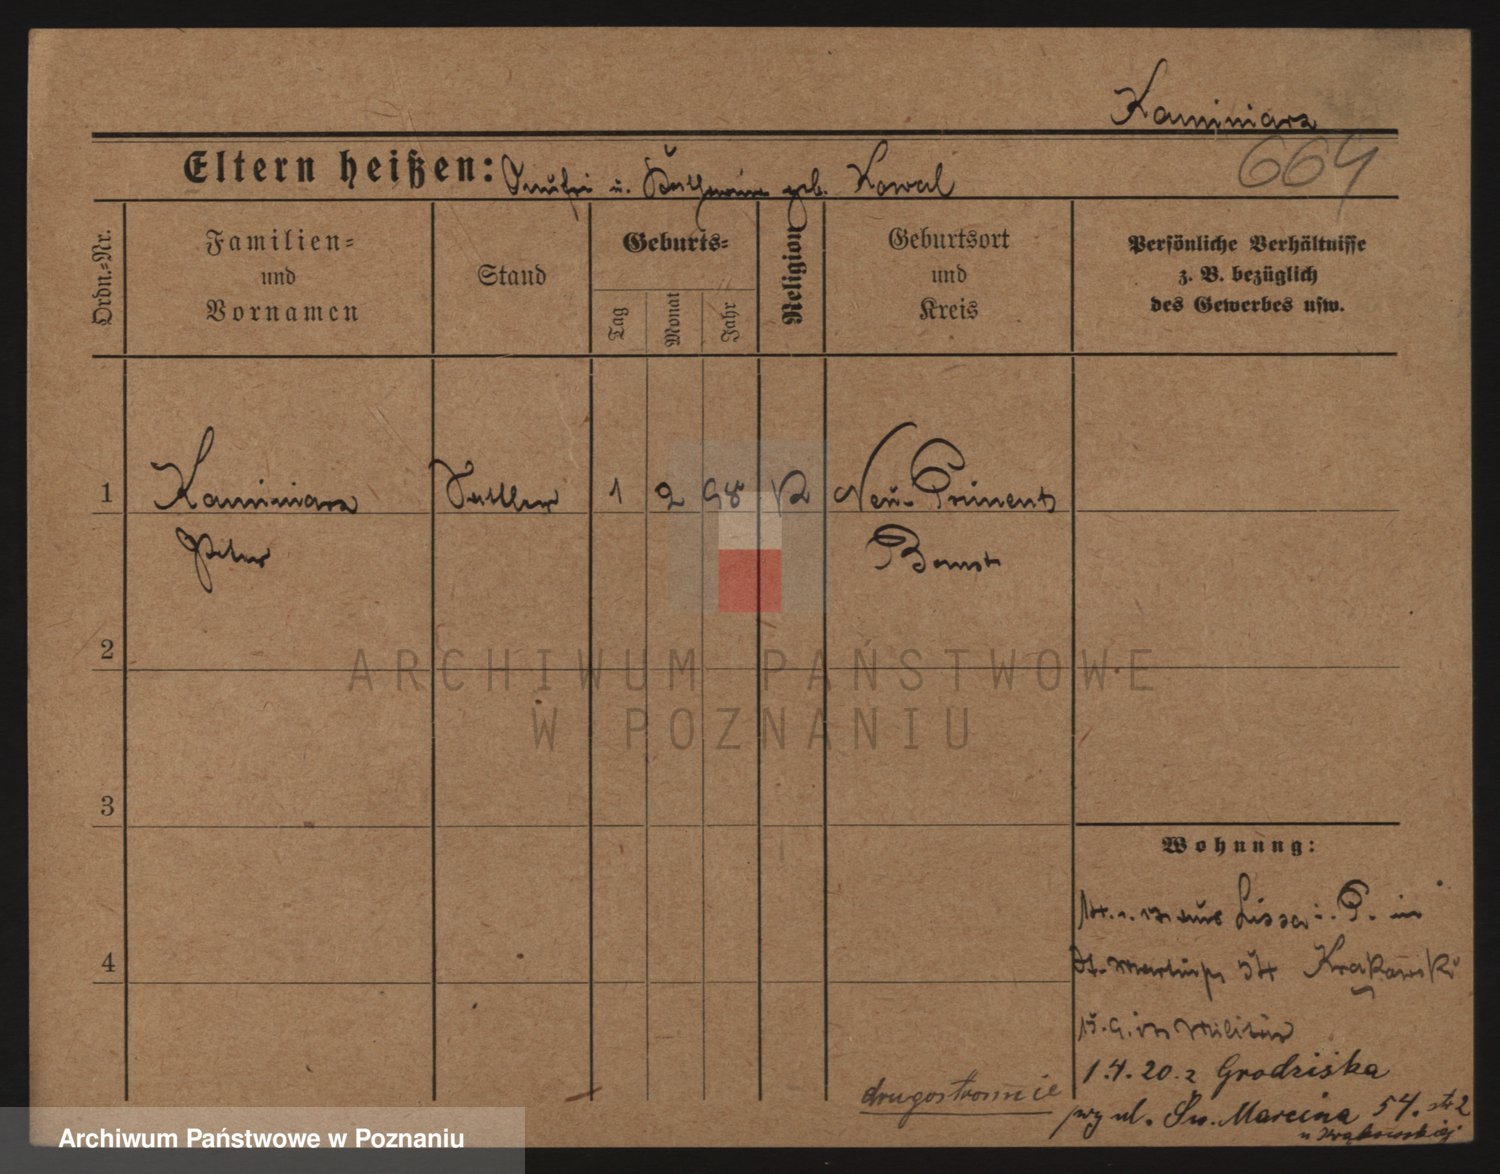 Kaminiarz
664
Eltern heißen: u. geb. Kowal
Ordn.=Nr.
Familien=
und
Vornamen
Stand
Geburts=
Tag
Monat
Jahr
Religion
Geburtsort
und
Kreis
Persönliche Verhältnisse
z. B. bezüglich
des Gewerbes usw.
1 Kaminiarz Sattler 1 2 98 Neu-Priment
Peter Bomst
2
3
4
ARCHIWUM PAŃSTWOWE
W POZNANIU
Wohnung:
aus Lissa i. P. in
St. Martinstr 54 Krakowski
Militär
1.4.20. z Grodziska
drugostronnie
przy ul. Św. Marcina 54. str 2
u Krąkowskiej
Archiwum Państwowe w Poznaniu